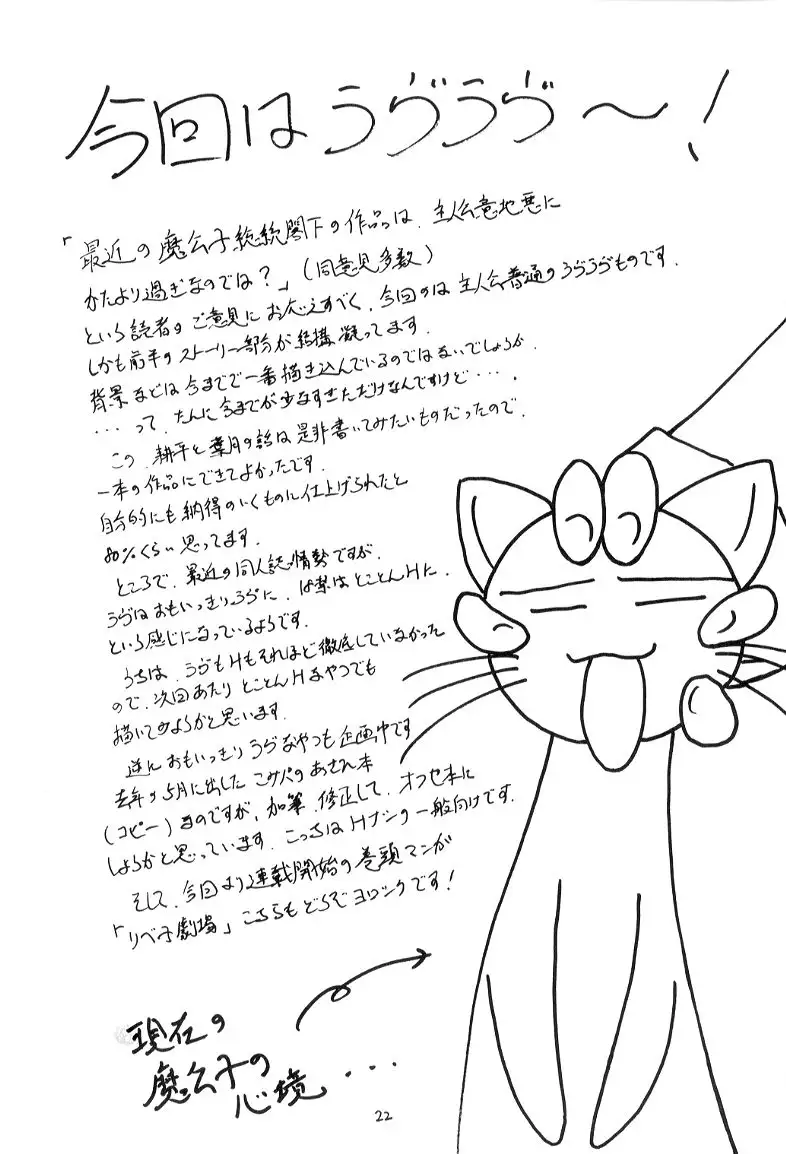 今回はうづうづ〜！
「最近の魔公子総統閣下の作品は、主人公意地悪に
かたより過ぎなのでは？」（同意見多数）
という読者のご意見にお応えすべく、今回のは主人公普通のうづうづものです．
しかも前半のストーリー部分が結構凝ってます．
背景などは今までで一番描き込んでいるのではないでしょうか．
・・・って、たんに今までが少なすぎただけなんですけど・・・．
この、耕平と葉月の話は是非書いてみたいものだったので、
一本の作品にできてよかったです．
自分的にも納得のいくものに仕上げられたと
80%くらい思ってます．
ところで、最近の同人誌情勢ですが、
うづはおもいっきりうづに、Hはとことん Hに、
という感じになっているようです．
うちは、うづもHもそれほど徹底していなかった
ので、次回あたりとことんHなやつでも
描いてみようかと思います．
逆に おもいっきり うづなやつも企画中です
去年の5月に出した こみパのあさひ本
（コピー）なのですが、加筆、修正して、オフセ本に
しようかと思っています．こっちはHナシの一般向けです．
そして、今回より連載開始の巻頭マンガ
「リベ子劇場」こちらもどうぞヨロシクです！
現在の
魔公子の
心境・・・
22